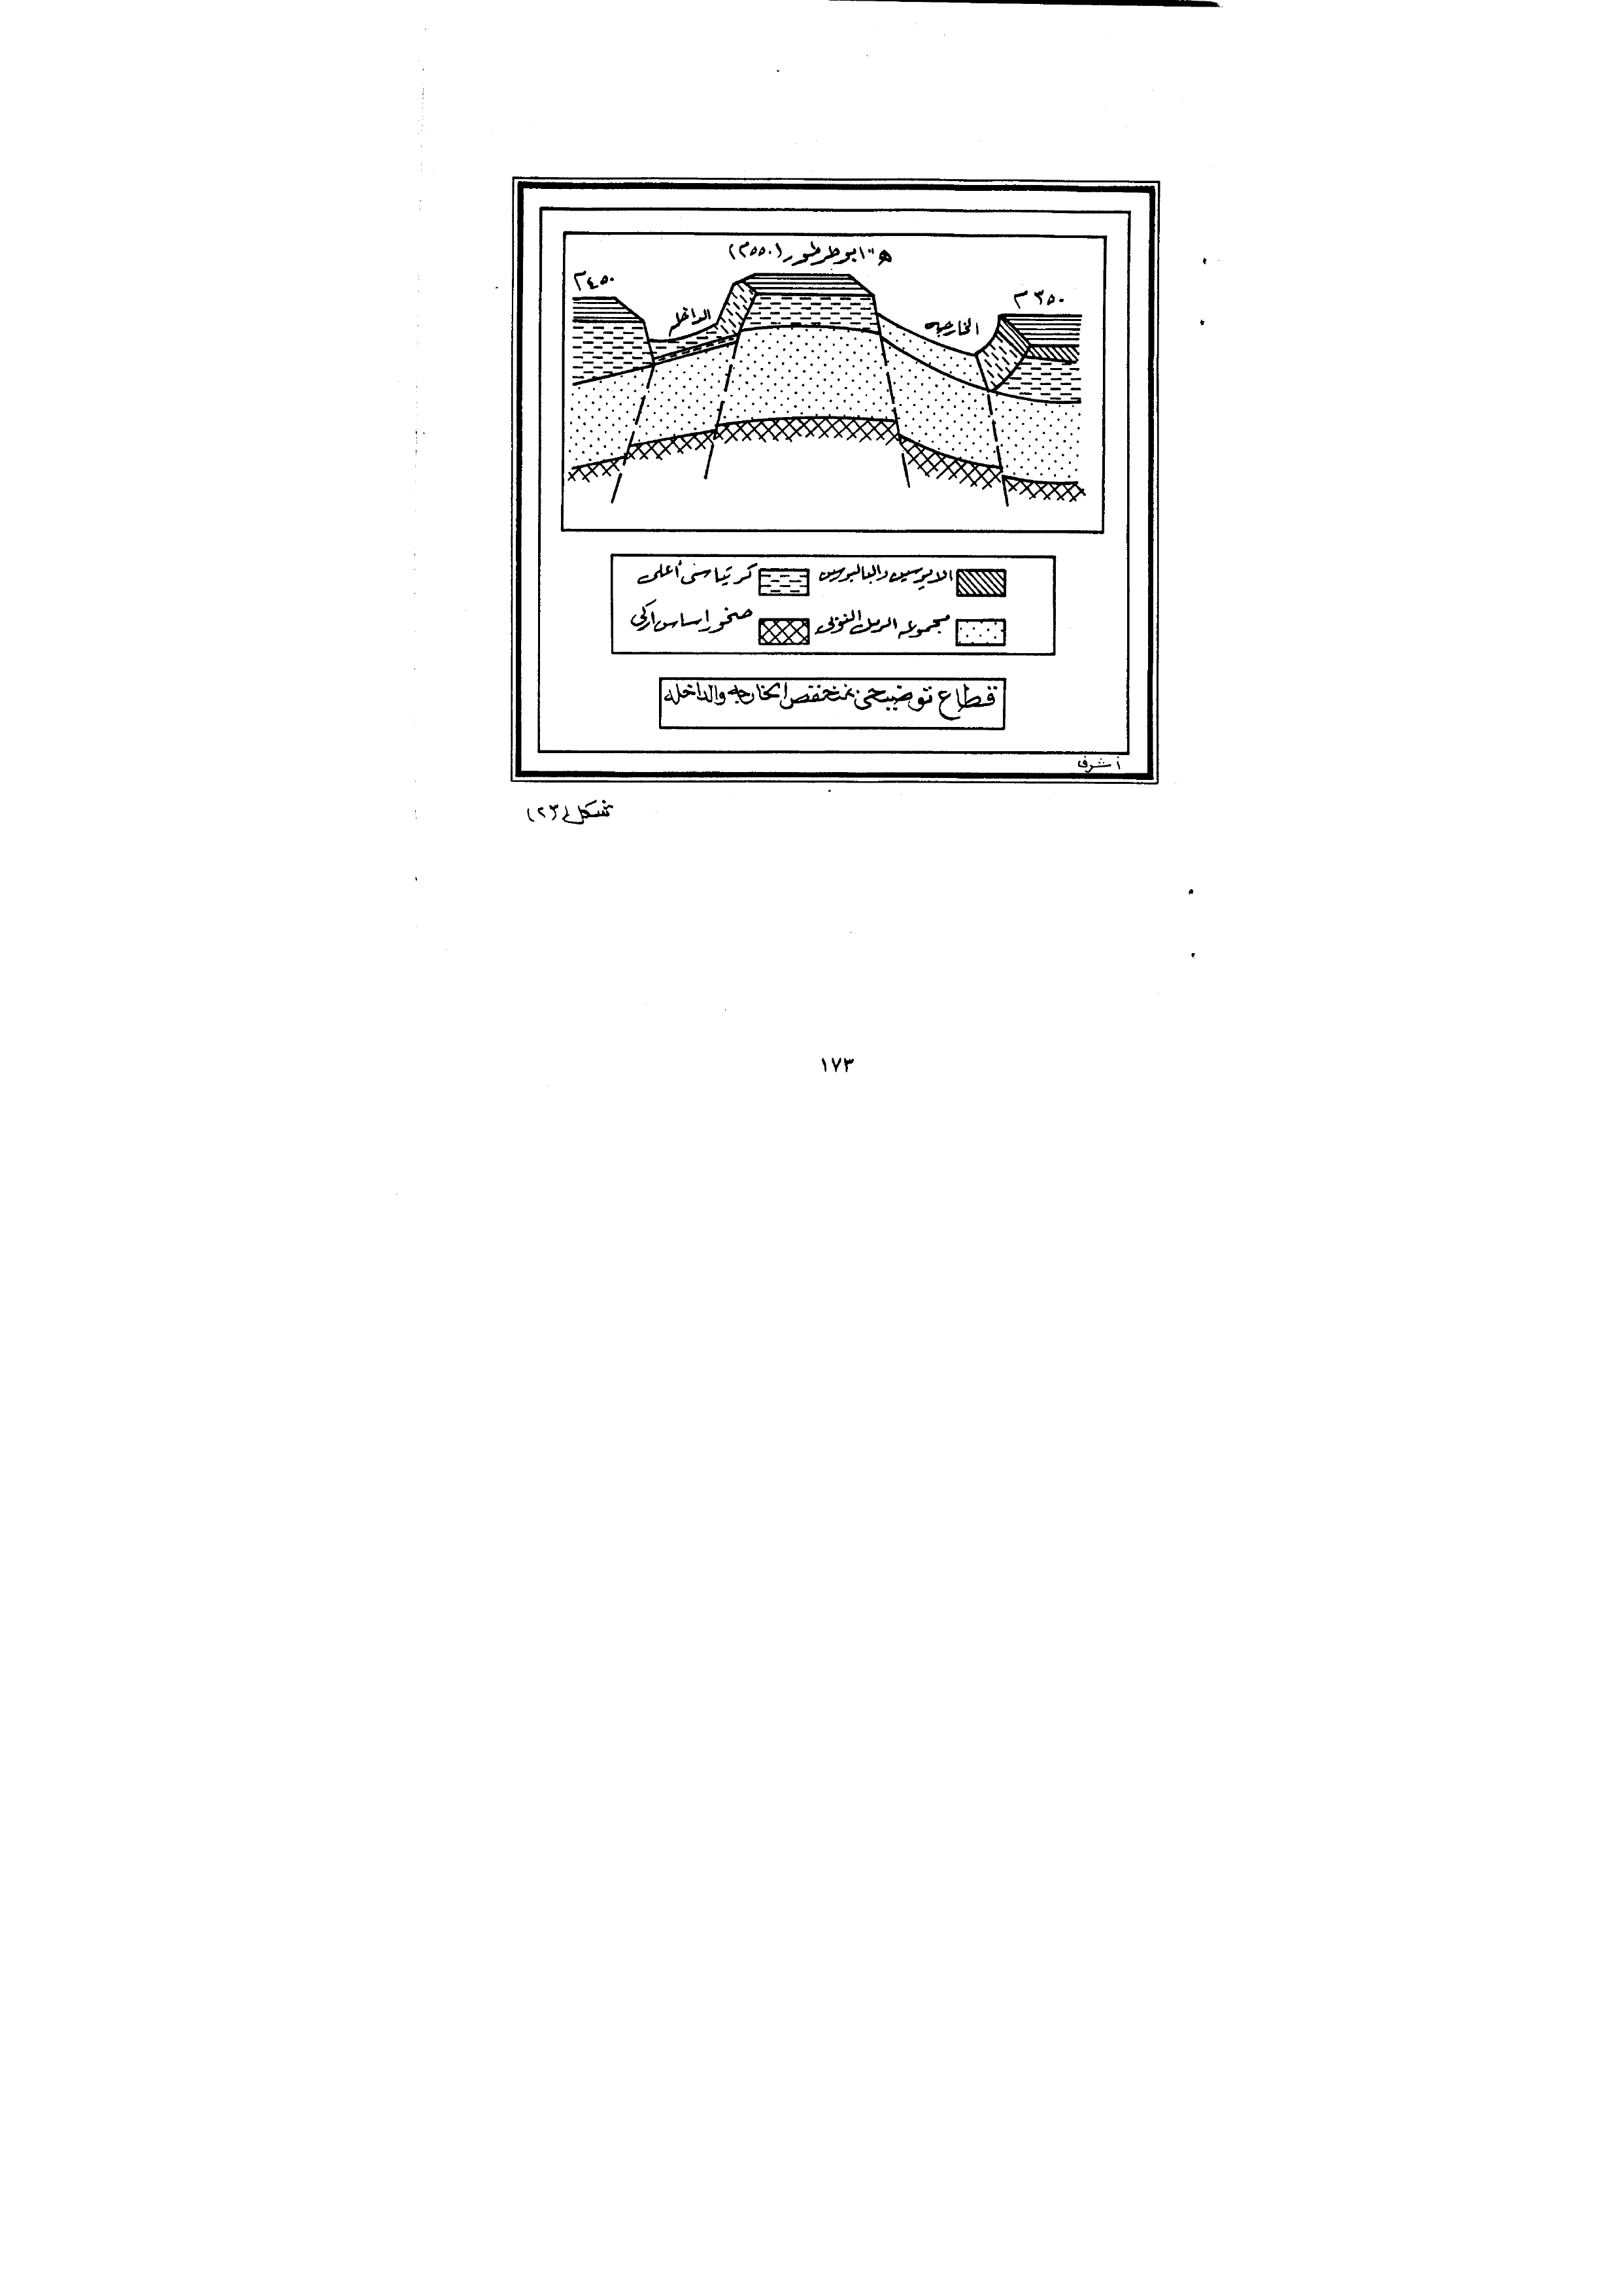 هـ" ابو طرطور (٥٥٠م)
٤٥٠م
٣٥٠م
الداخله
الخارجه
الايوسين والباليوسين
كريتاسى أعلى
مجموعه الرمل النوبى
صخور اساس اركى
قطاع توضيحى بمنخفض الخارجه والداخله
أشرف
شكل (٢٣)
١٧٣